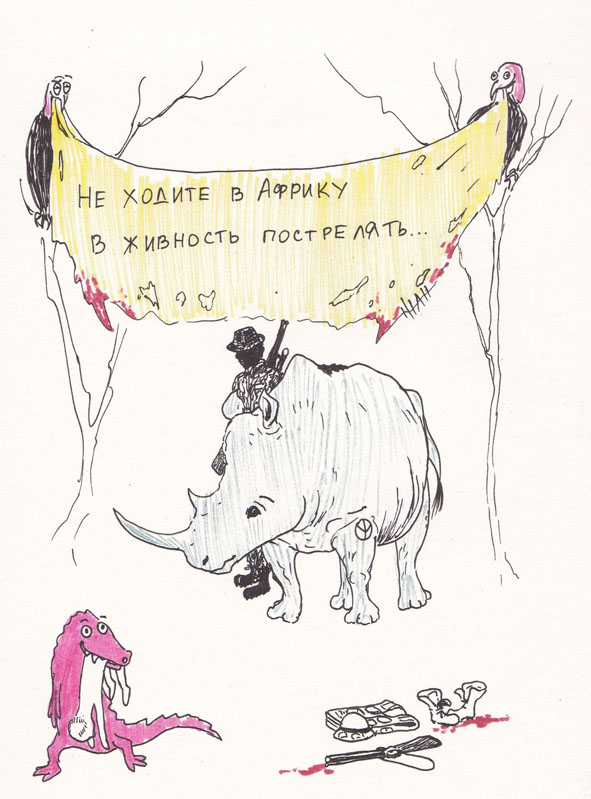 Не ходите в Африку
в живность пострелять...